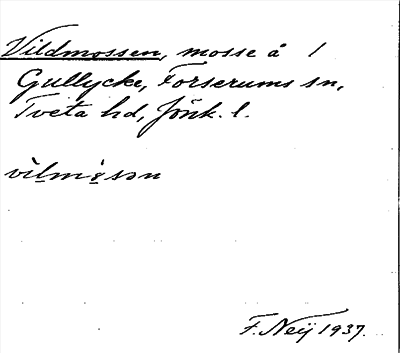 Vildmossen, mosse å 1
Gullycke, Forserums sn,
Tveta hd, Jönk. l.
vìlmòsən
F. Neij 1937.